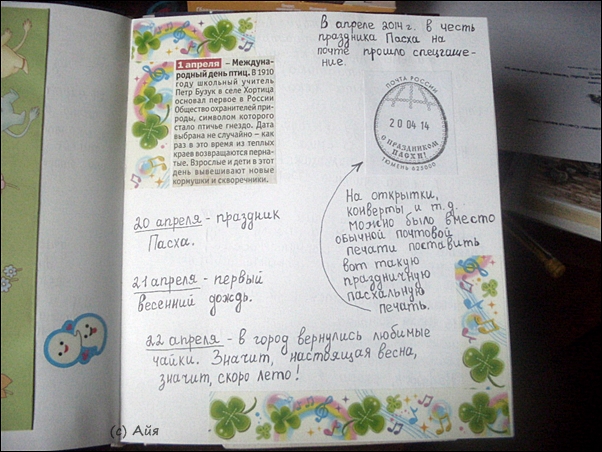 1 апреля – Междуна-
родный день птиц. В 1910
году школьный учитель
Петр Бузук в селе Хортица
основал первое в России
Общество охранителей при-
роды, символом которого
стало птичье гнездо. Дата
выбрана не случайно – как
раз в это время из теплых
краев возвращаются перна-
тые. Взрослые и дети в этот
день вывешивают новые
кормушки и скворечники.
20 апреля - праздник
Пасха.
21 апреля - первый
весенний дождь.
22 апреля - в город вернулись любимые
чайки. Значит, настоящая весна,
значит, скоро лето!
В апреле 2014 г. в честь
праздника Пасха на
почте прошло спецгаше-
ние.
ПОЧТА РОССИИ
20 04 14
С ПРАЗДНИКОМ
ПАСХИ!
ТЮМЕНЬ 625000
На открытки,
конверты и т.д.
можно было вместо
обычной почтовой
печати поставить
вот такую
праздничную
пасхальную
печать.
(c) Айя